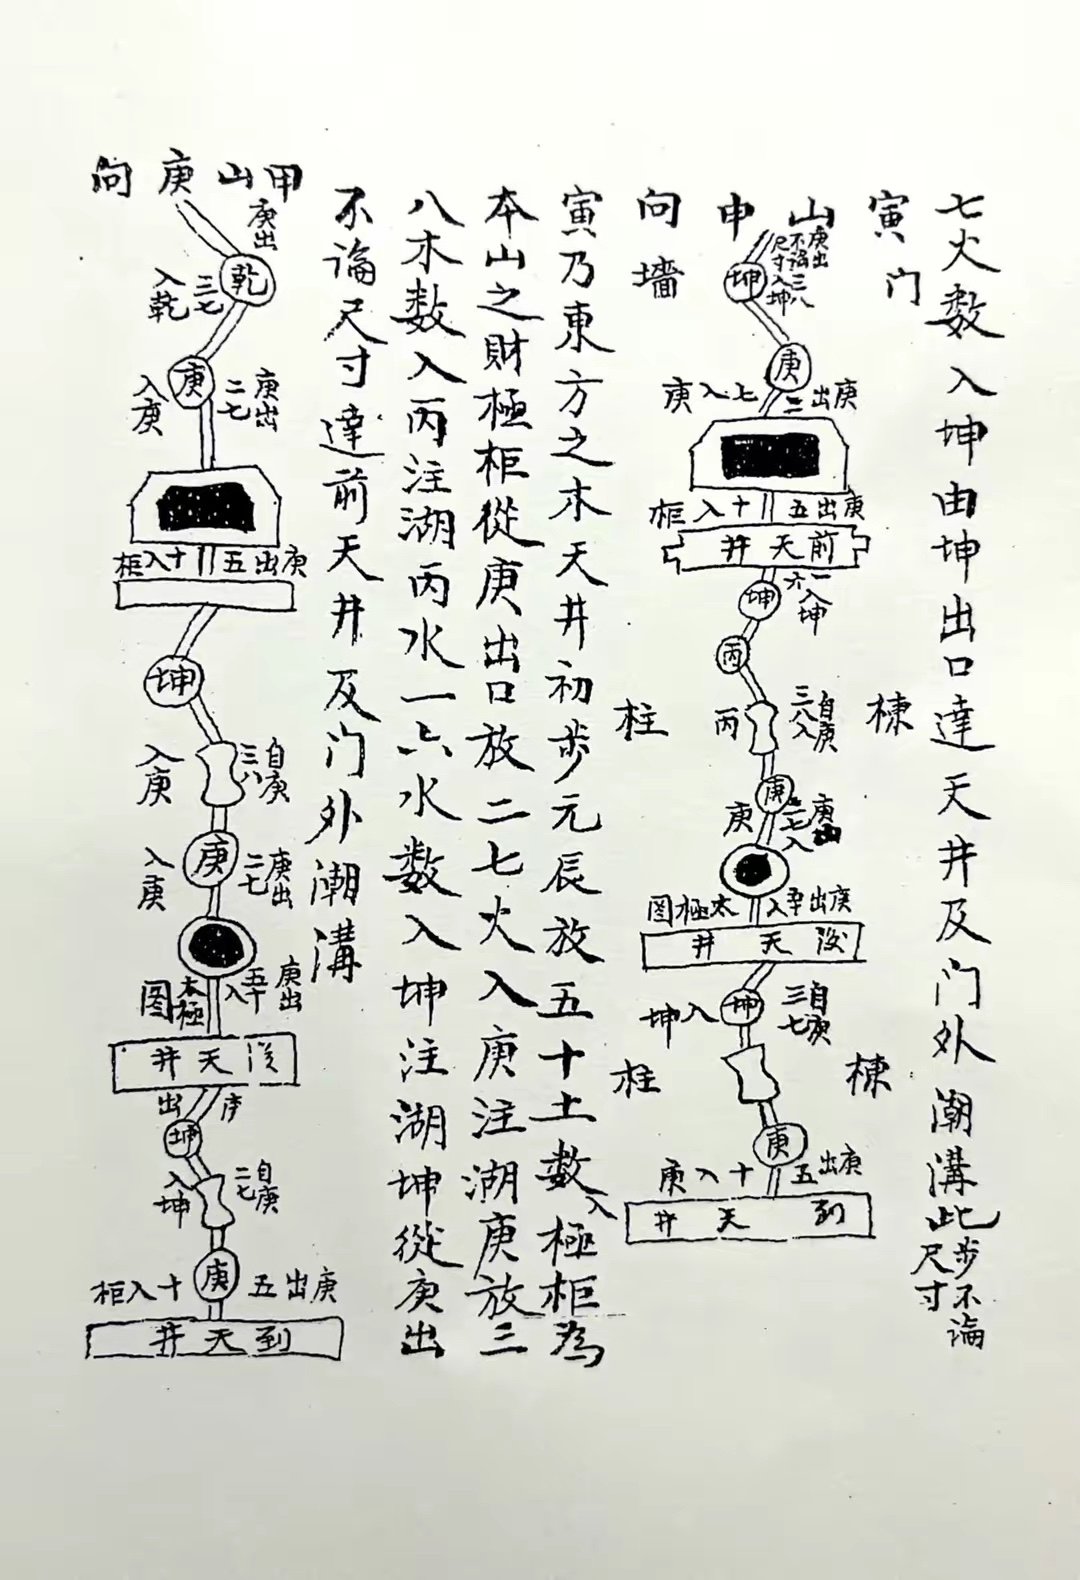 七火数入坤由坤出口達天井及门外潮溝此步不論尺寸
寅山申向
门
墙
棟
柱
棟
柱
庚出不論尺寸三八入坤
坤
庚
庚出三七入庚
庚出五十入柜
前天井
一六入坤
坤
丙
自庚三八入丙
庚
庚出二七入庚
庚出五十入太極圖
後天井
坤
自庚三七入坤
庚
庚出五十入庚
到天井
寅乃東方之木天井初步元辰放五十土数入極柜為
本山之財極柜從庚出口放二七火入庚注湖庚放三
八木数入丙注湖丙水一六水数入坤注湖坤從庚出
不論尺寸達前天井及门外潮溝
甲山庚向
庚出三七入乾
乾
庚
庚出二七入庚
庚出五十入柜
坤
自庚三八入庚
庚
庚出二七入庚
庚出五十入太極圖
後天井
出
坤
自庚二七入坤
庚
庚出五十入柜
到天井